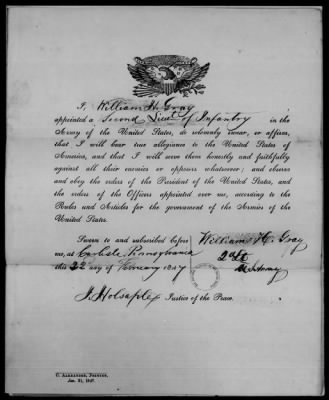 I, William H. Gray
appointed a Second Lieut of Infantry in the
Army of the United States, do solemnly swear, or affirm,
that I will bear true allegiance to the United States of
America, and that I will serve them honestly and faithfully
against all their enemies or opposers whatsoever; and observe
and obey the orders of the President of the United States, and
the orders of the Officers appointed over me, according to the
Rules and Articles for the government of the Armies of the
United States.
Sworn to and subscribed before
me, at Carlisle Pennsylvania
this 22 day of February 1847
William H. Gray
2d Lt
U S Army
J. Holsaple Justice of the Peace.
C. Alexander, Printer,
Jan. 21, 1847.